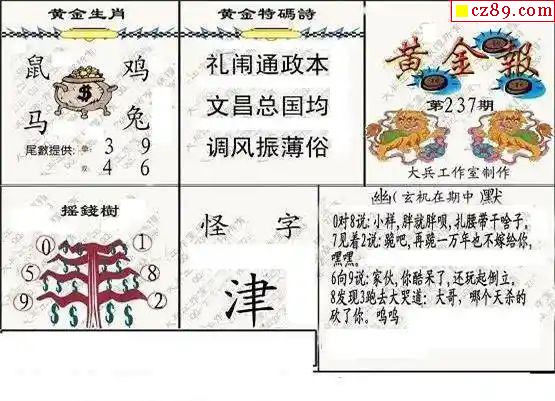 cz89.com
黄金生肖
鼠 鸡
$
马 兔
尾數提供: 单 3 9
双 4 6
黄金特碼詩
礼闹通政本
文昌总国均
调风振薄俗
黄金報
第237期
大兵工作室制作
摇錢樹
0 1
5 8
9 2
$ $ $ $ $ $
怪 字
津
幽(玄机在期中)默
0对8说: 小样, 胖就胖呗, 扎腰带干啥子。
7见着2说: 跪吧, 再跪一万年也不嫁给你,
嘿嘿。
6向9说: 家伙, 你酷呆了, 还玩起倒立。
8发现3跑去大哭道: 大哥, 哪个天杀的
砍了你。呜呜